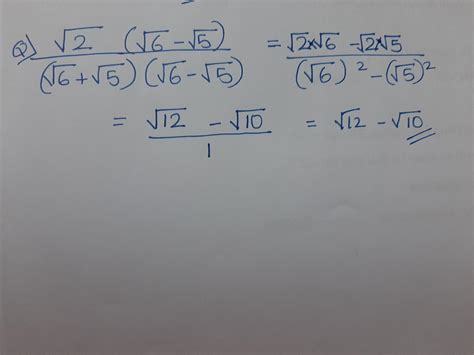 Q) √2 (√6 - √5) / (√6 + √5) (√6 - √5) = √2×√6 - √2×√5 / (√6)² - (√5)²
= √12 - √10 / 1 = √12 - √10